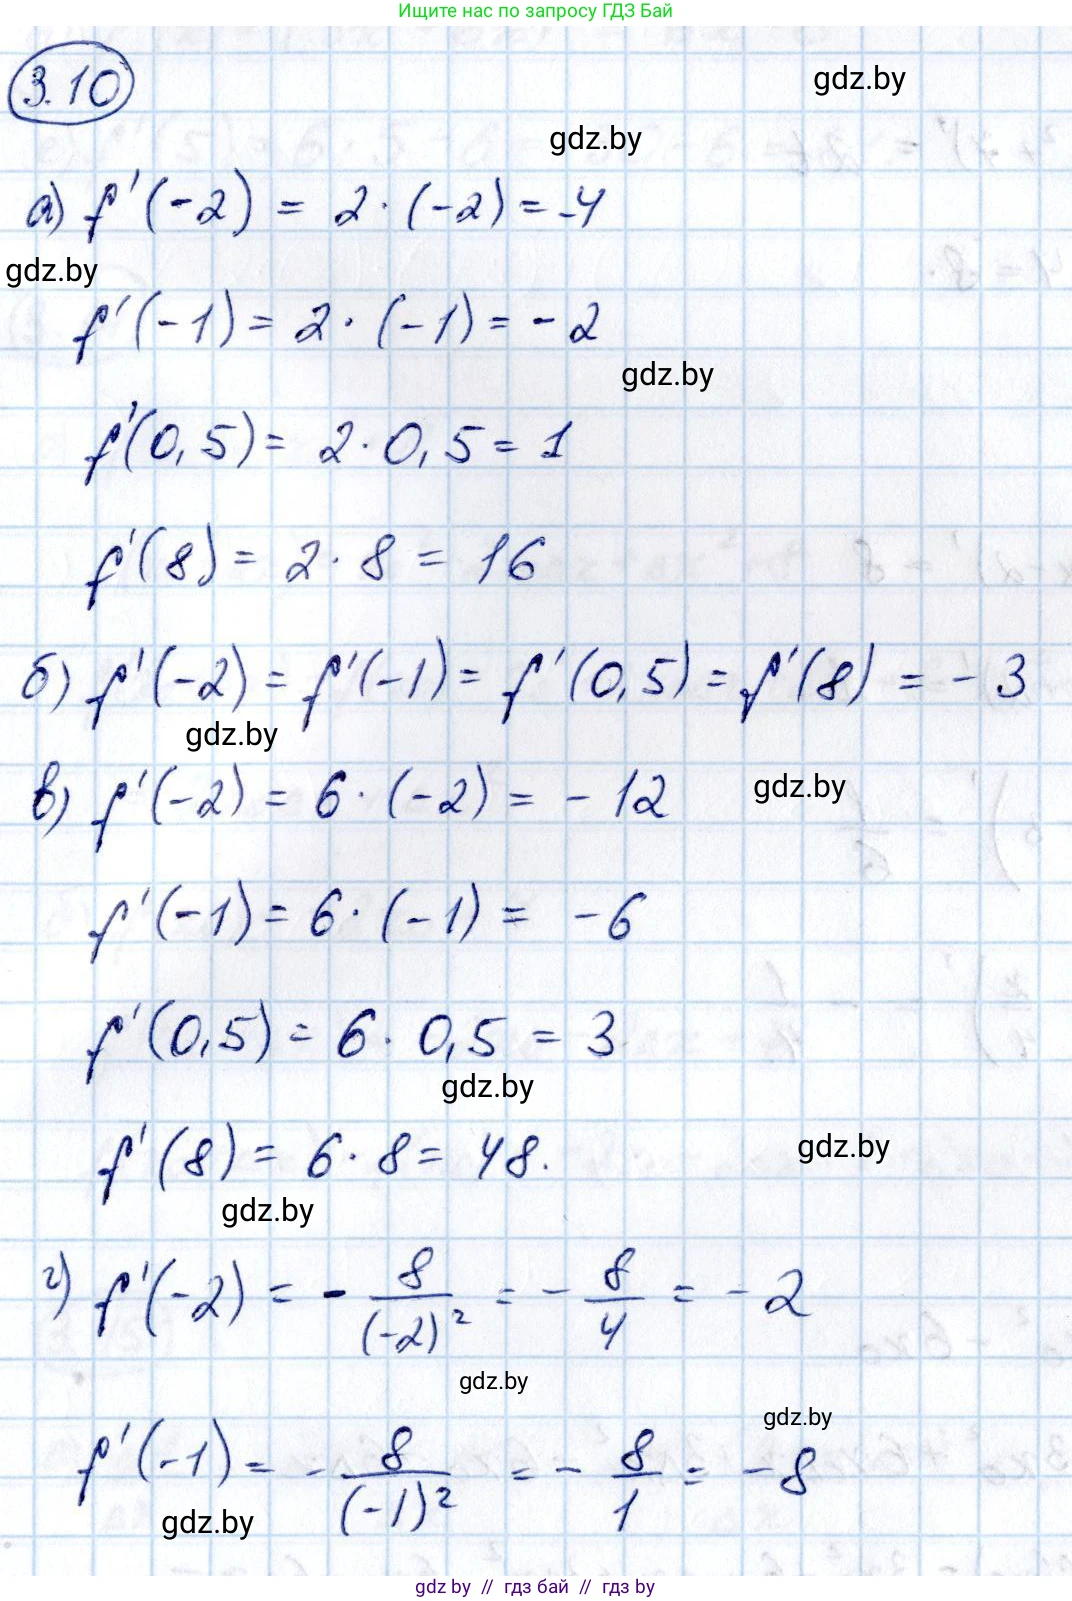 Ищите нас по запросу ГДЗ Бай
3.10
gdz.by
gdz.by
а) f'(-2) = 2 · (-2) = -4
gdz.by
f'(-1) = 2 · (-1) = -2
gdz.by
f'(0,5) = 2 · 0,5 = 1
f'(8) = 2 · 8 = 16
б) f'(-2) = f'(-1) = f'(0,5) = f'(8) = -3
gdz.by
в) f'(-2) = 6 · (-2) = -12
gdz.by
f'(-1) = 6 · (-1) = -6
f'(0,5) = 6 · 0,5 = 3
gdz.by
f'(8) = 6 · 8 = 48.
gdz.by
gdz.by
г) f'(-2) = - 8/(-2)² = - 8/4 = -2
gdz.by
gdz.by
f'(-1) = - 8/(-1)² = - 8/1 = -8
gdz.by
gdz by // гдз бай // гдз by